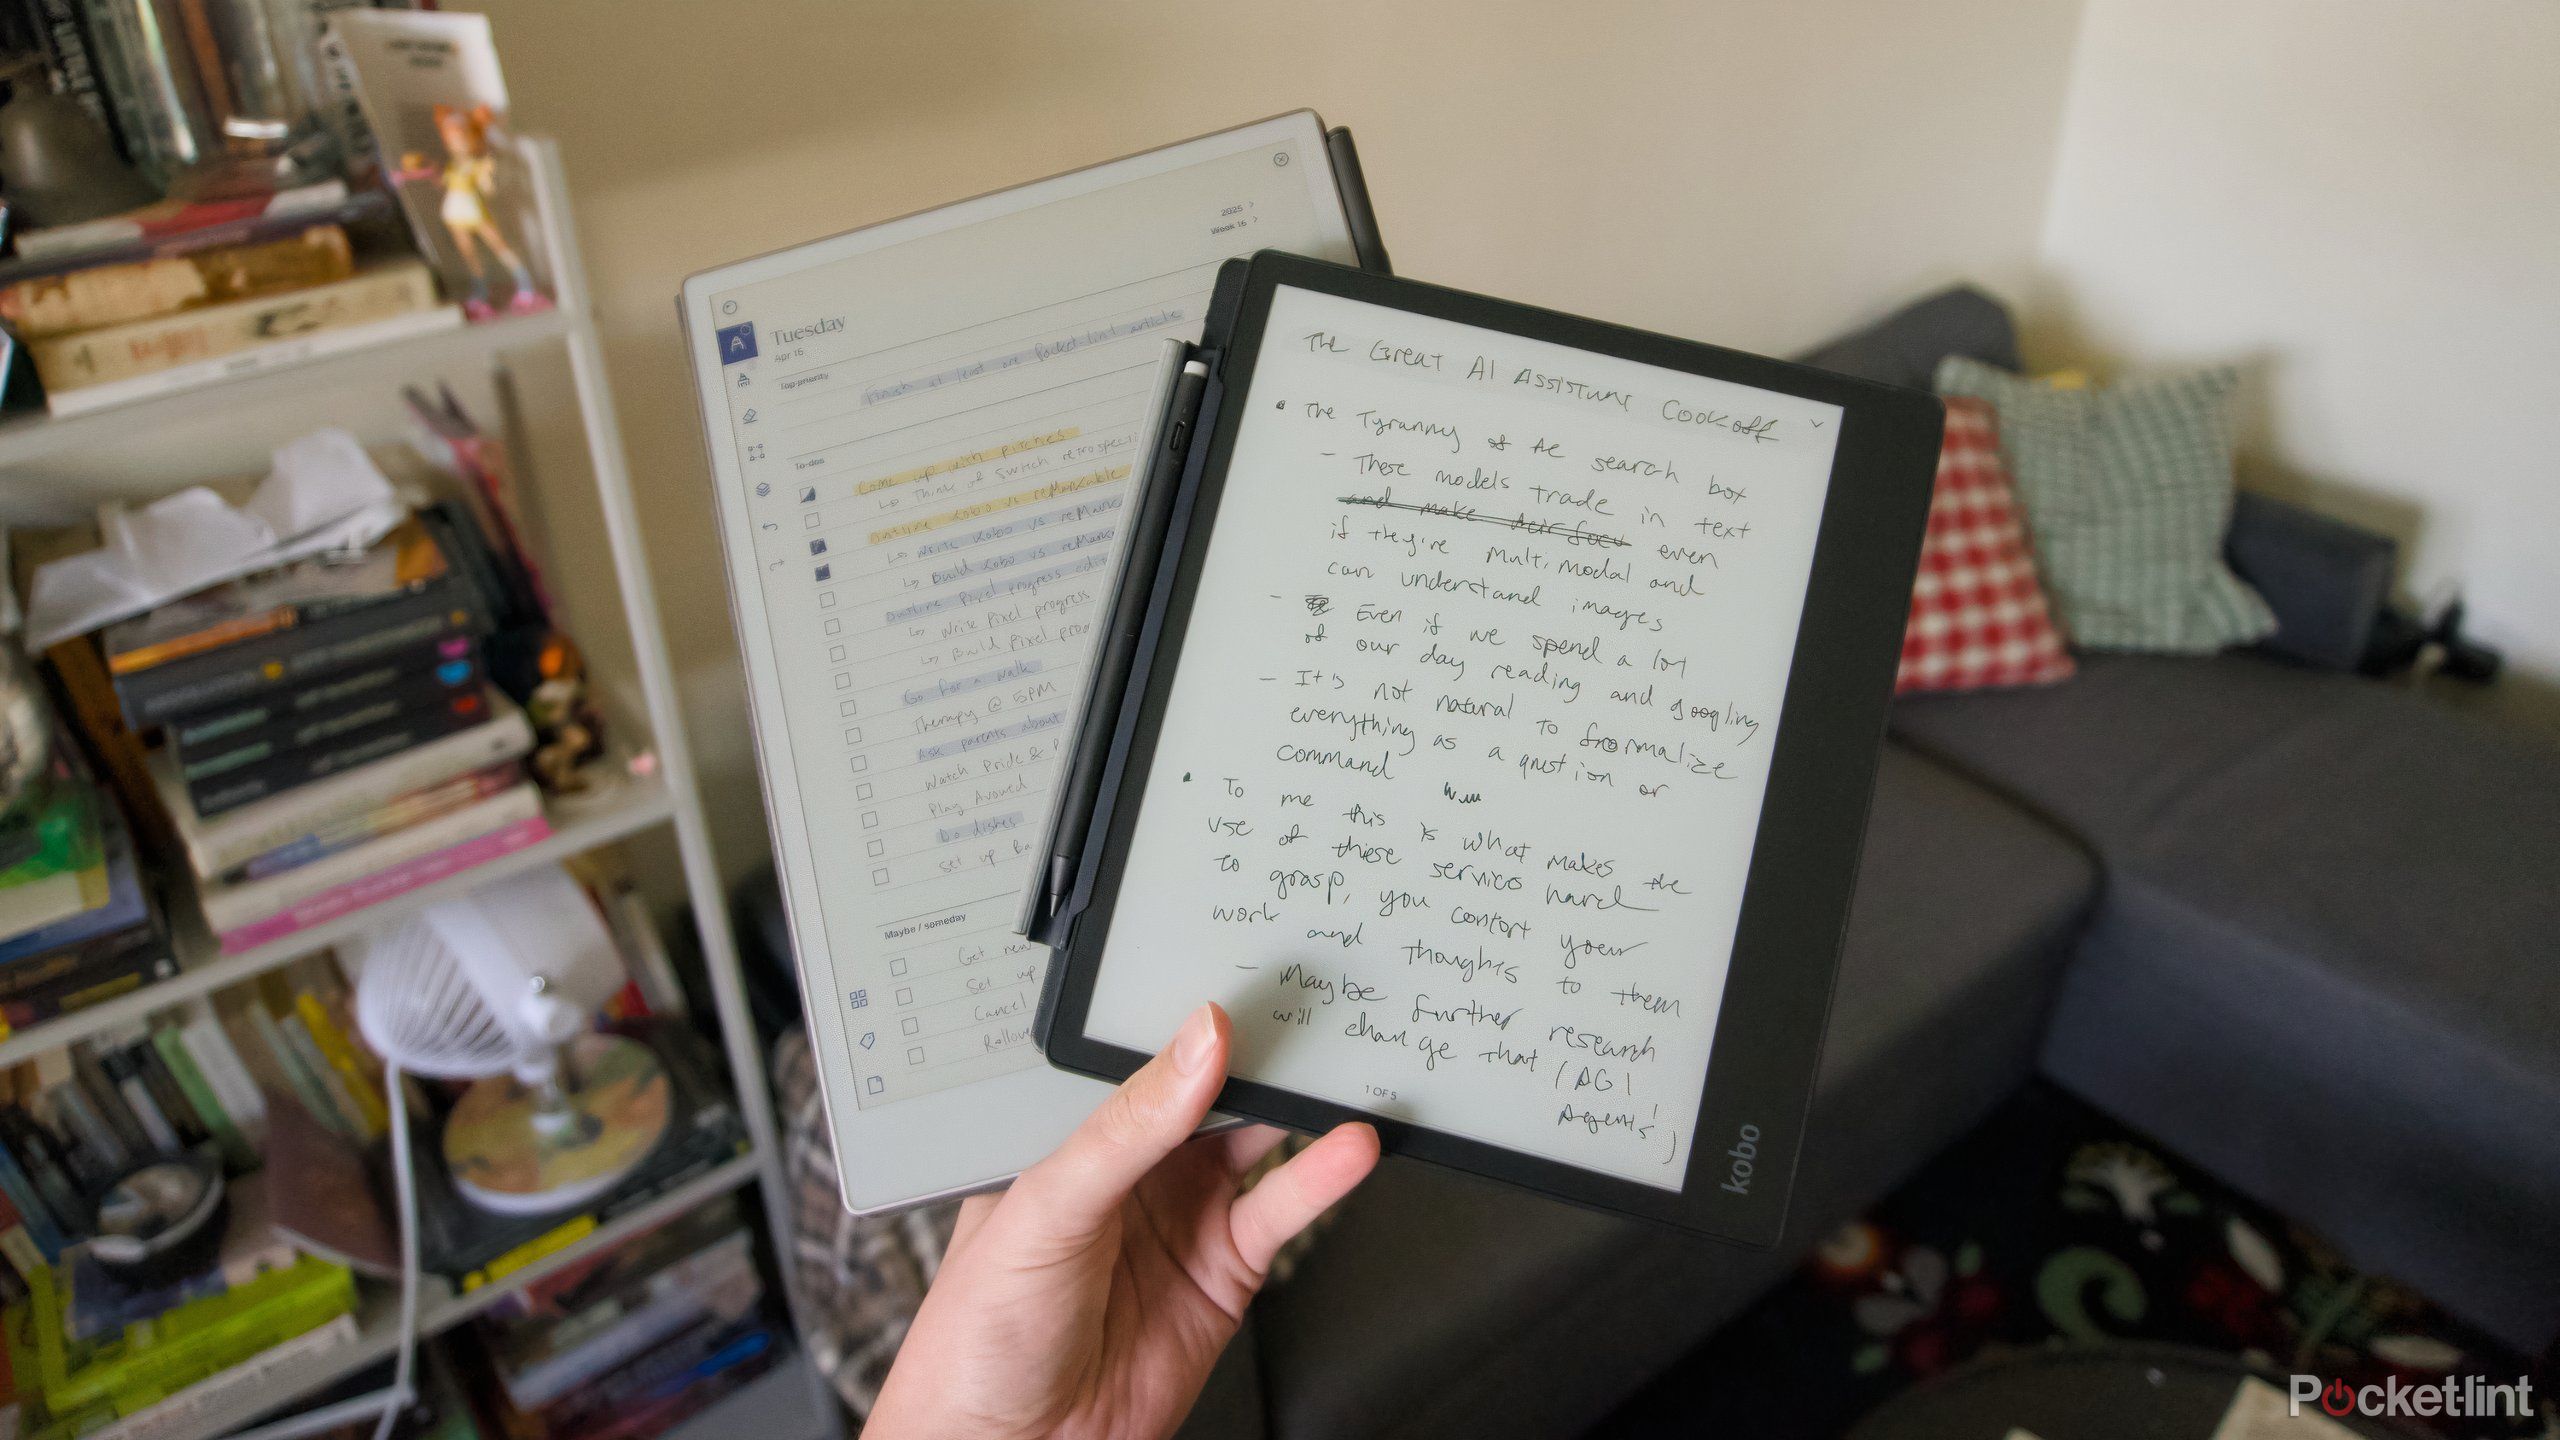 2025 >
Week 16 >
A
Tuesday
Apr 15
Top priority
Finish at least one Pocket-lint article
To-dos
Come up with pitches
↳ Think of Switch retrospecti
Outline Kobo vs reMarkable
↳ Write Kobo vs reMark
↳ Build Kobo vs reMarka
Outline Pixel progress edit
↳ Write Pixel progress
↳ Build Pixel pro
Go for a walk
Therapy @ 5PM
Ask parents about
Watch Pride & P
Play Avowed
Do dishes
Set up Ba
Maybe / someday
Get new
Set up
Cancel
Rollove
The Great AI Assistant Cookoff
• The Tyranny of the search bot
- These models trade in text
and make their even
if they're multimodal and
can understand images
- Even if we spend a lot
of our day reading and googling
- It's not natural to formalize
everything as a question or
command
• To me this is what makes the
use of these services hard
to grasp, you contort your
work and thoughts to them
- Maybe further research
will change that (AGI
Agents! )
1 OF 5
kobo
Pocket-lint